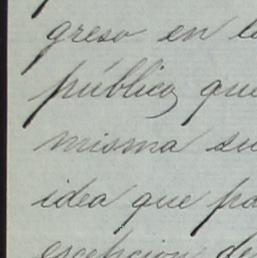 greso en l
pública, que
misma su
idea que pa
escepcion de